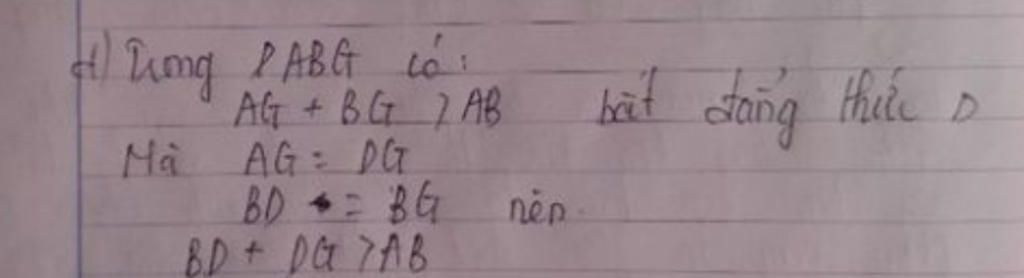 d) Trong △ABG có:
AG + BG > AB bất đảng thức △
Mà AG = DG
BD = BG nên
BD + DG > AB